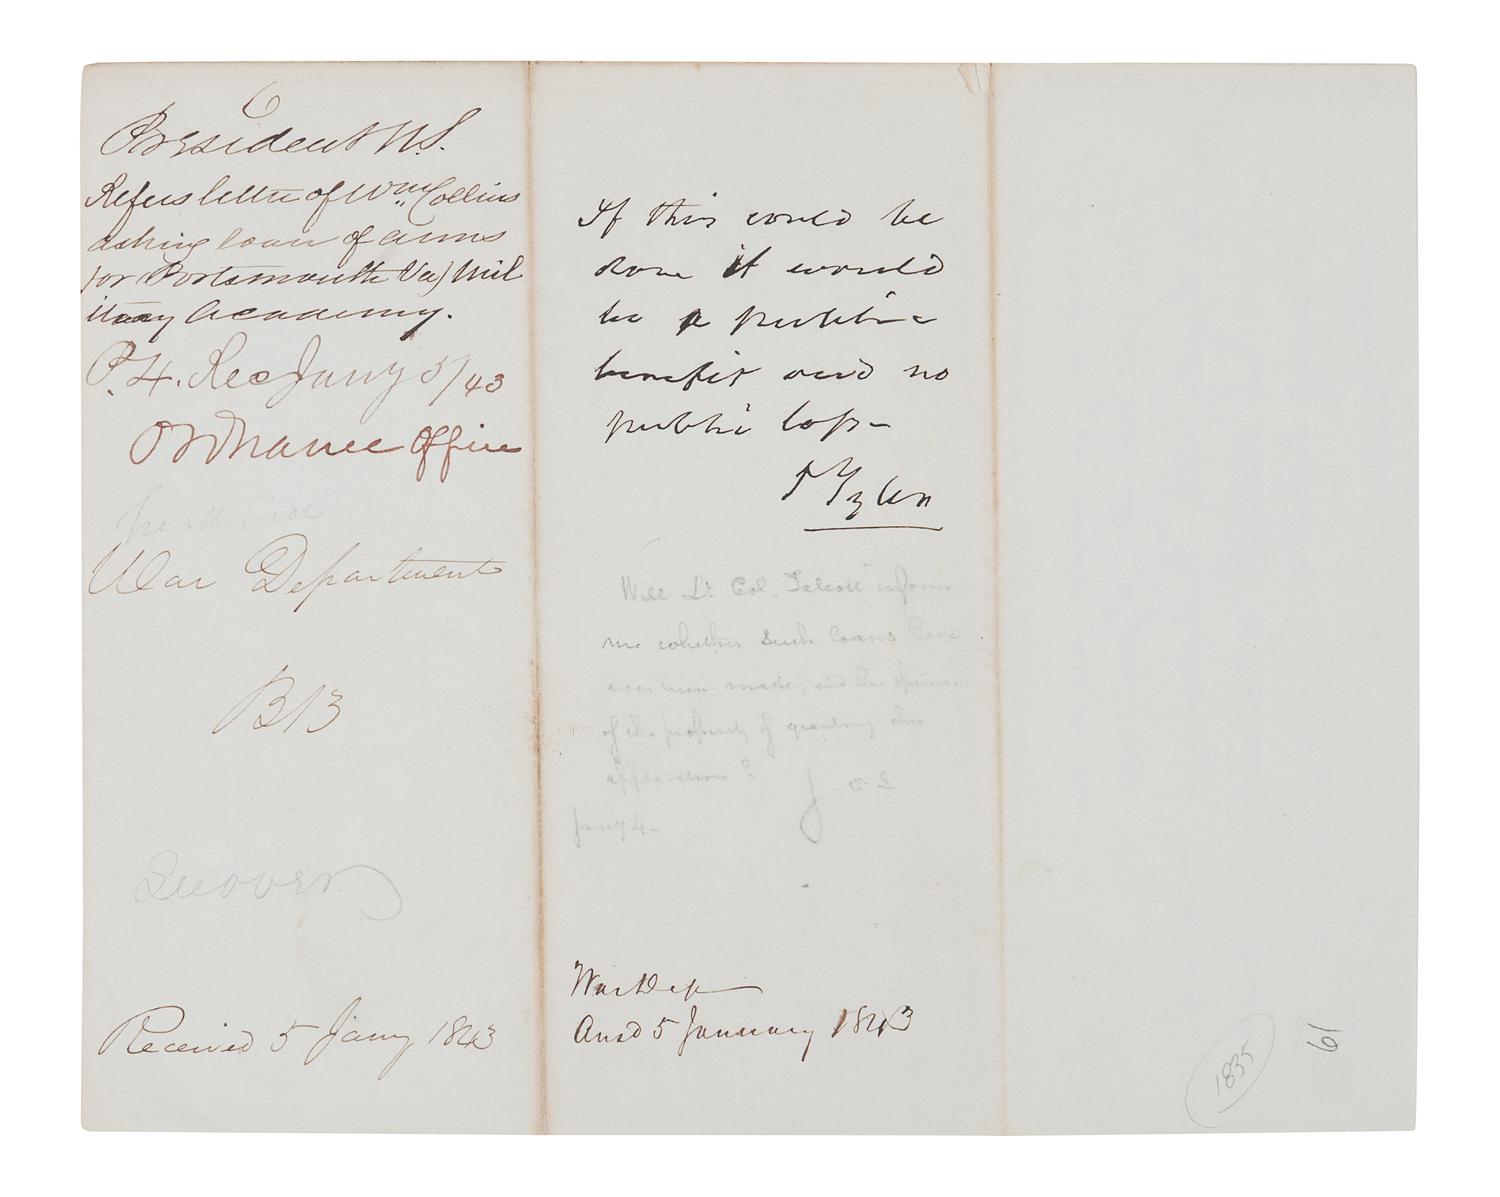 6
President U.S.
Refers letter of Wm. Collins
asking loan of arms
for Portsmouth Va) Mil
itary Academy.
P. 4. Rec Jany 5/43
Ordnance Office
War Department
B 13
Received 5 Jany 1843
If this could be
done it would
be a public
benefit and no
public loss-
J Tyler
Will Lt. Col. Talcott inform
me whether such loans have
ever been made, and his opinion
of the propriety of granting this
application?
J. C. S
Jany 4-
War Dep
Ansd 5 January 1843
1835
61